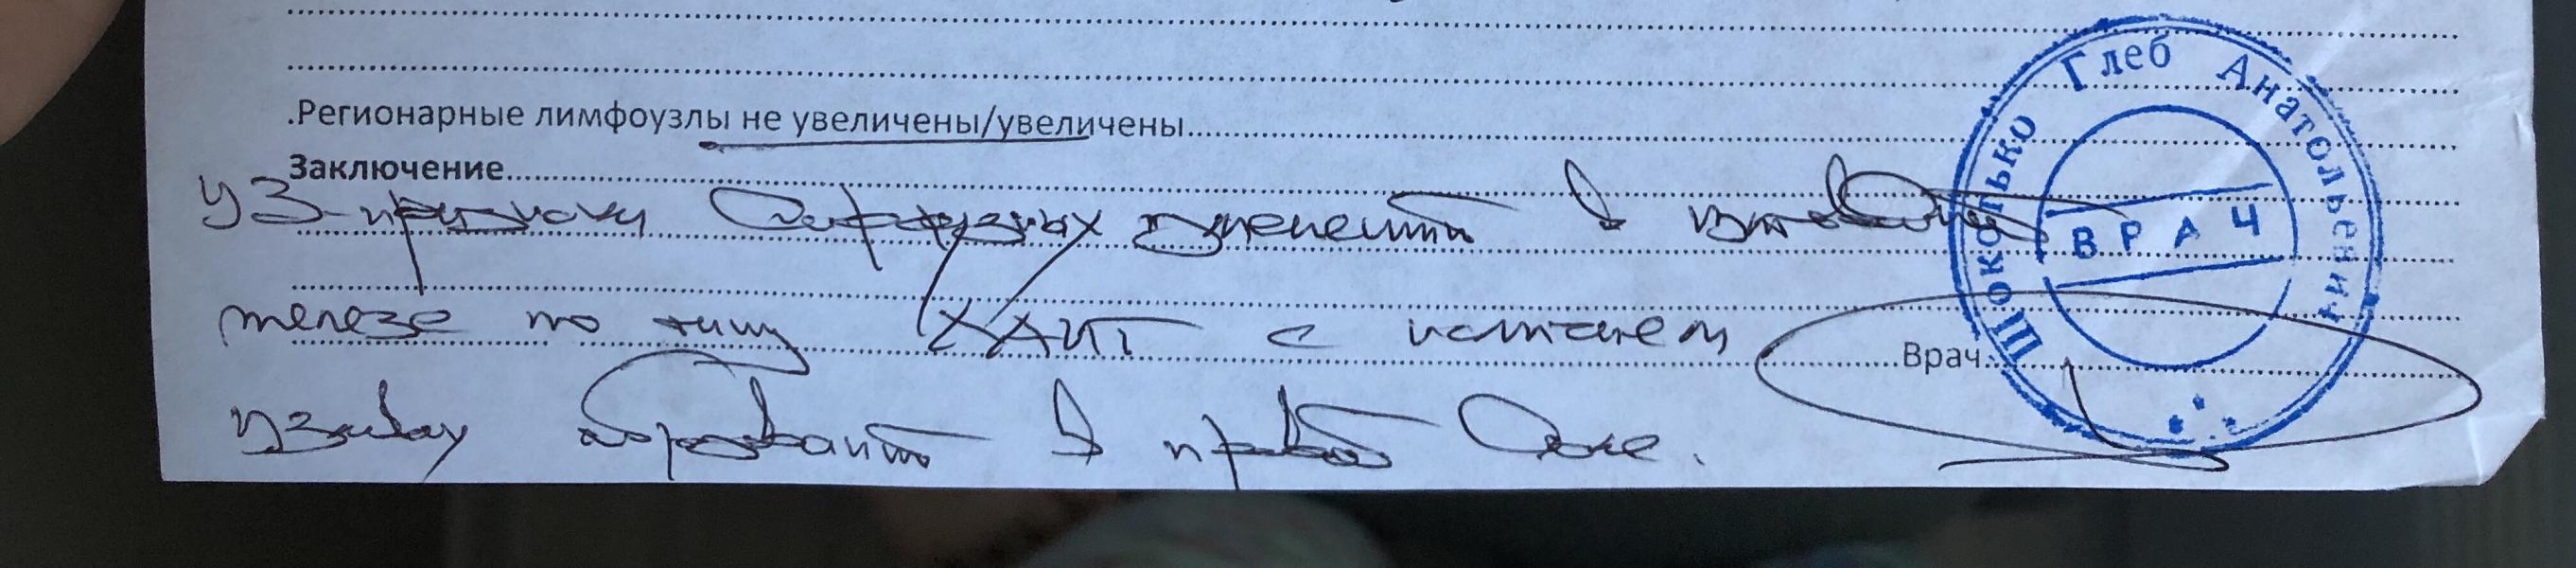 .Регионарные лимфоузлы не увеличены/увеличены
Заключение
УЗ-признаки диффузных изменений в щитовидной
железе по типу ХАИТ с
узловых образований в правой доле.
Врач
Шоколько Глеб Анатольевич
ВРАЧ